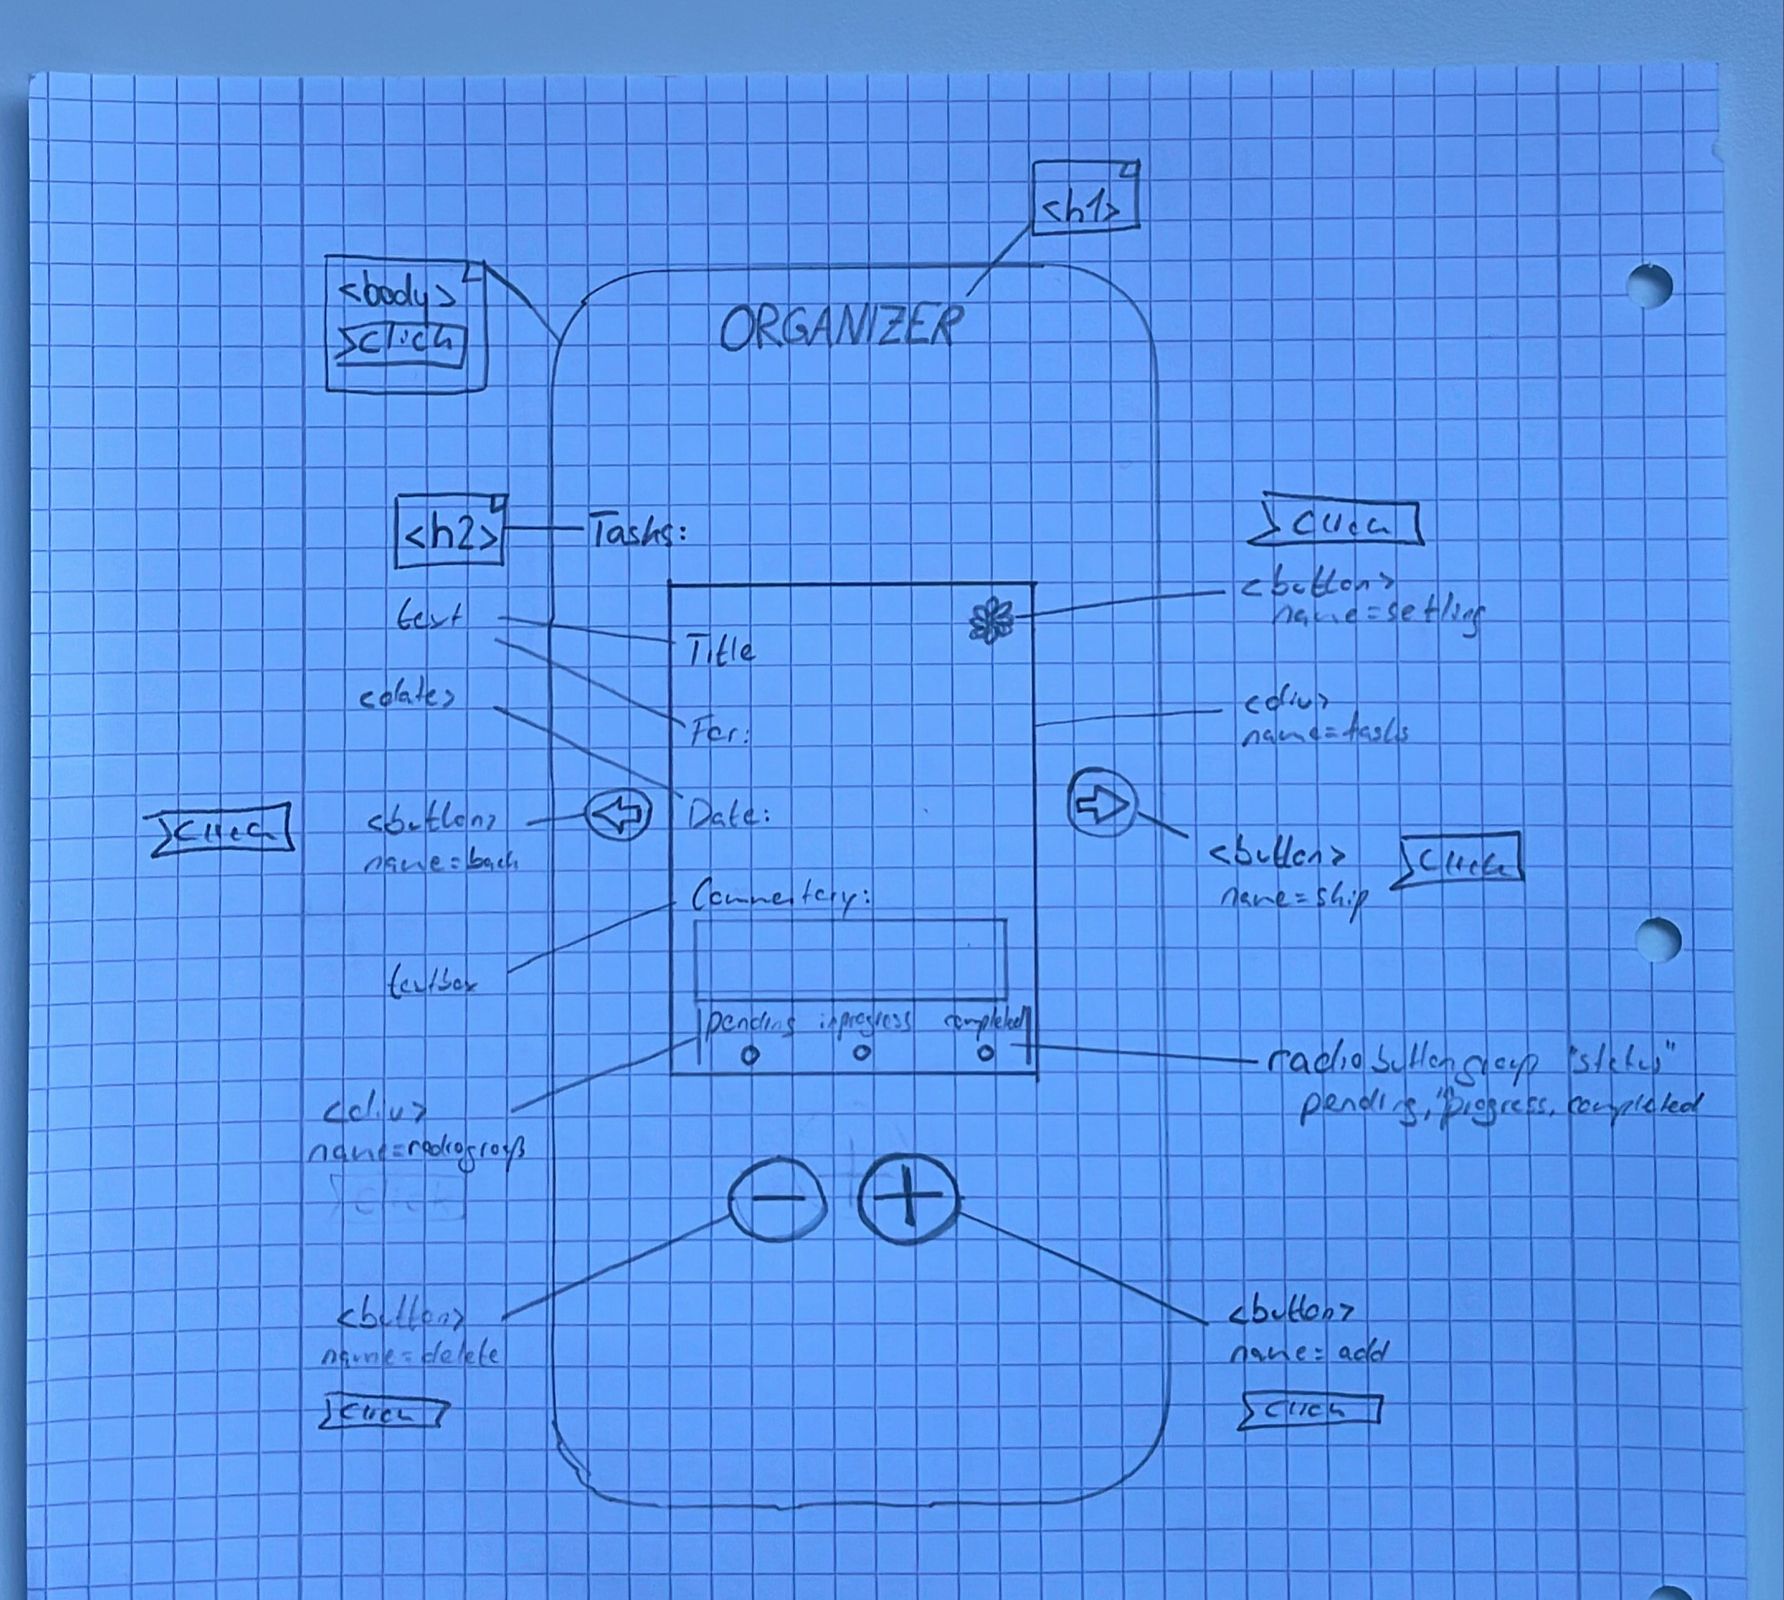 <h1>
<body>
Click
ORGANIZER
<h2>
Tasks:
Click
<button>
name=setting
text
Title
<date>
<div>
name=tasks
For:
Click
<button>
name=back
Date:
<button>
name=skip
Click
Commentary:
textbox
pending inprogress completed
radiobuttongroup "status"
pending, progress, completed
<div>
name=radiogroup
Click
<button>
name=delete
Click
<button>
name=add
Click